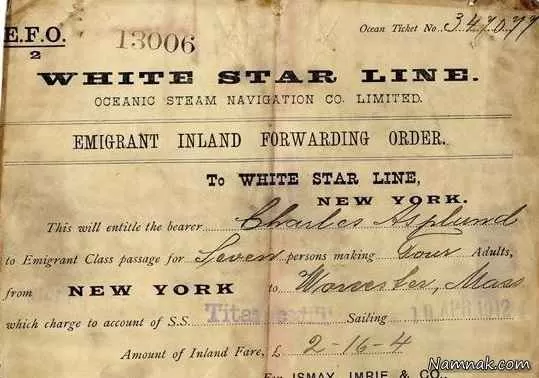 E.F.O. 13006 Ocean Ticket No. 347077
2
WHITE STAR LINE.
OCEANIC STEAM NAVIGATION CO. LIMITED.
EMIGRANT INLAND FORWARDING ORDER.
To WHITE STAR LINE,
NEW YORK.
This will entitle the bearer Charles Asplund
to Emigrant Class passage for Seven persons making Four Adults,
from NEW YORK to Worcester, Mass
which charge to account of S.S. Titanic Sailing 10 APR 1912
Amount of Inland Fare, £ 2-16-4
For ISMAY, IMRIE & CO.,
Namnak.com